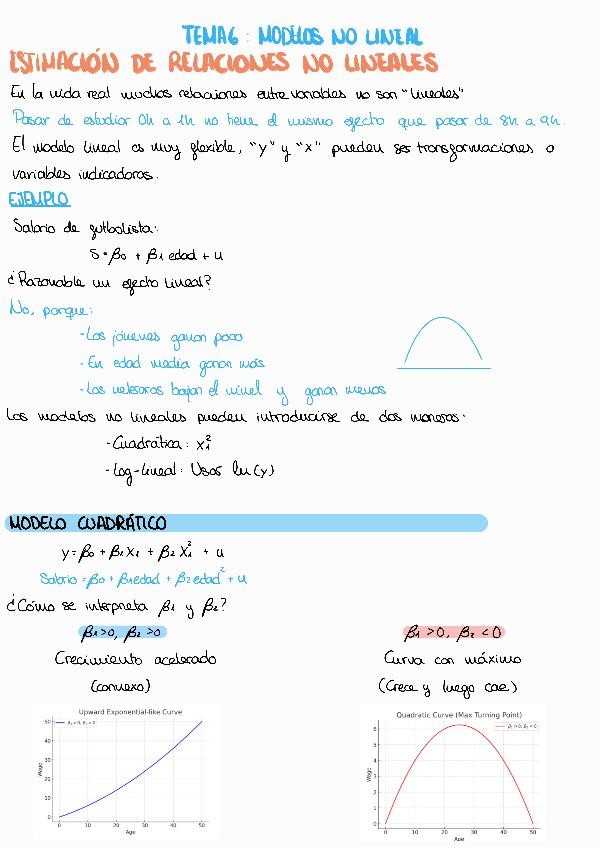 TEMA 6: MODELOS NO LINEAL
ESTIMACIÓN DE RELACIONES NO LINEALES
En la vida real muchas relaciones entre variables no son "lineales"
Pasar de estudiar 0h a 1h no tiene el mismo efecto que pasar de 8h a 9h.
El modelo lineal es muy flexible, "y" y "x" pueden ser transformaciones o
variables indicadoras.
EJEMPLO
Salario de futbolista:
S = β0 + β1 edad + u
¿Razonable un efecto lineal?
No, porque:
- Los jóvenes ganan poco
- En edad media ganan más
- Los veteranos bajan el nivel y ganan menos
Los modelos no lineales pueden introducirse de dos maneras:
- Cuadrática: x₁²
- Log-lineal: Usar ln(y)
MODELO CUADRÁTICO
y = β0 + β1 X1 + β2 X1² + u
Salario = β0 + β1 edad + β2 edad² + u
¿Cómo se interpreta β1 y β2?
β1 > 0, β2 > 0
β1 > 0, β2 < 0
Crecimiento acelerado
Curva con máximo
(convexo)
(Crece y luego cae)
Upward Exponential-like Curve
β₁ > 0, β₂ > 0
50
40
30
20
10
0
Wage
0 10 20 30 40 50
Age
Quadratic Curve (Max Turning Point)
β₁ > 0, β₂ < 0
6
5
4
3
2
1
0
Wage
0 10 20 30 40 50
Age